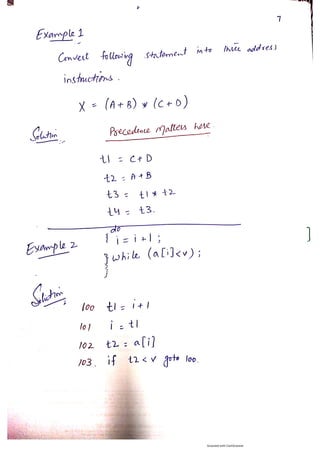 7
Example 1
Convert following statement into three address
instructions.
X = (A + B) * (C + D)
Solution
Precedence Matters here
t1 = C + D
t2 = A + B
t3 = t1 * t2
t4 = t3.
Example 2
do
{ i = i + 1 ;
} while (a[i] < v) ;
}
Solution
100 t1 = i + 1
101 i = t1
102 t2 = a[i]
103. if t2 < v goto 100.
Scanned with CamScanner